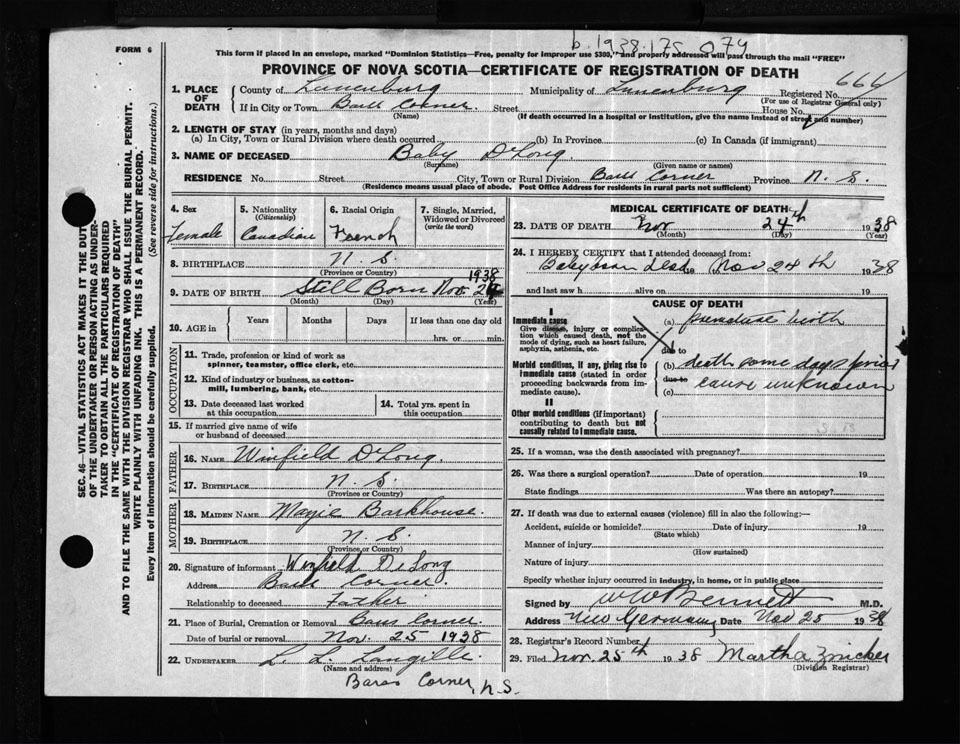 b. 1938.175 074
FORM 6
This form if placed in an envelope, marked "Dominion Statistics—Free, penalty for improper use $300," and properly addressed will pass through the mail "FREE"
PROVINCE OF NOVA SCOTIA—CERTIFICATE OF REGISTRATION OF DEATH
666
1. PLACE OF DEATH
County of Lunenburg Municipality of Lunenburg Registered No.
(For use of Registrar General only)
If in City or Town Bars Corner. Street House No.
(Name) (If death occurred in a hospital or institution, give the name instead of street and number)
2. LENGTH OF STAY (in years, months and days)
(a) In City, Town or Rural Division where death occurred (b) In Province (c) In Canada (if immigrant)
3. NAME OF DECEASED Baby DeLong.
(Surname) (Given name or names)
RESIDENCE No. Street City, Town or Rural Division Bars Corner Province N. S.
(Residence means usual place of abode. Post Office Address for residents in rural parts not sufficient)
4. Sex
Female
5. Nationality
(Citizenship)
Canadian
6. Racial Origin
French
7. Single, Married, Widowed or Divorced
(write the word)
8. BIRTHPLACE N. S.
(Province or Country)
1938
9. DATE OF BIRTH Still Born Nov. 24
(Month) (Day) (Year)
10. AGE in
Years Months Days If less than one day old
hrs. or min.
OCCUPATION
11. Trade, profession or kind of work as
spinner, teamster, office clerk, etc.
12. Kind of industry or business, as cotton-
mill, lumbering, bank, etc.
13. Date deceased last worked
at this occupation
14. Total yrs. spent in
this occupation
15. If married give name of wife
or husband of deceased
FATHER
16. NAME Winfield DeLong.
17. BIRTHPLACE N. S.
(Province or Country)
MOTHER
18. MAIDEN NAME Magie Barkhouse.
19. BIRTHPLACE N. S.
(Province or Country)
20. Signature of informant Winfield DeLong
Address Bars Corner.
Relationship to deceased Father
21. Place of Burial, Cremation or Removal Bars Corner.
Date of burial or removal Nov. 25 1938
22. UNDERTAKER L. L. Langille.
(Name and address)
Baras Corner, N.S.
MEDICAL CERTIFICATE OF DEATH
23. DATE OF DEATH Nov 24th 1938
(Month) (Day) (Year)
24. I HEREBY CERTIFY that I attended deceased from:
Baby born dead 19 (Nov 24th 1938
and last saw h alive on 19
CAUSE OF DEATH
I
Immediate cause
Give disease, injury or complication which caused death, not the mode of dying, such as heart failure, asphyxia, asthenia, etc.
(a) premature birth
due to
Morbid conditions, if any, giving rise to immediate cause (stated in order proceeding backwards from immediate cause).
(b) death some days prior
due to
(c) cause unknown
II
Other morbid conditions (if important) contributing to death but not causally related to immediate cause.
25. If a woman, was the death associated with pregnancy?
26. Was there a surgical operation? Date of operation 19
State findings Was there an autopsy?
27. If death was due to external causes (violence) fill in also the following:—
Accident, suicide or homicide? Date of injury 19
(State which)
Manner of injury
(How sustained)
Nature of injury
Specify whether injury occurred in industry, in home, or in public place
Signed by W W Bennett M.D.
Address New Germany Date Nov 25 1938
28. Registrar's Record Number
29. Filed Nov. 25th 1938 Martha Zwicker
(Division Registrar)
SEC. 46—VITAL STATISTICS ACT MAKES IT THE DUTY
OF THE UNDERTAKER OR PERSON ACTING AS UNDER-
TAKER TO OBTAIN ALL THE PARTICULARS REQUIRED
IN THE "CERTIFICATE OF REGISTRATION OF DEATH"
AND TO FILE THE SAME WITH THE DIVISION REGISTRAR WHO SHALL ISSUE THE BURIAL PERMIT.
WRITE PLAINLY WITH UNFADING INK. THIS IS A PERMANENT RECORD.
Every item of information should be carefully supplied. (See reverse side for instructions.)